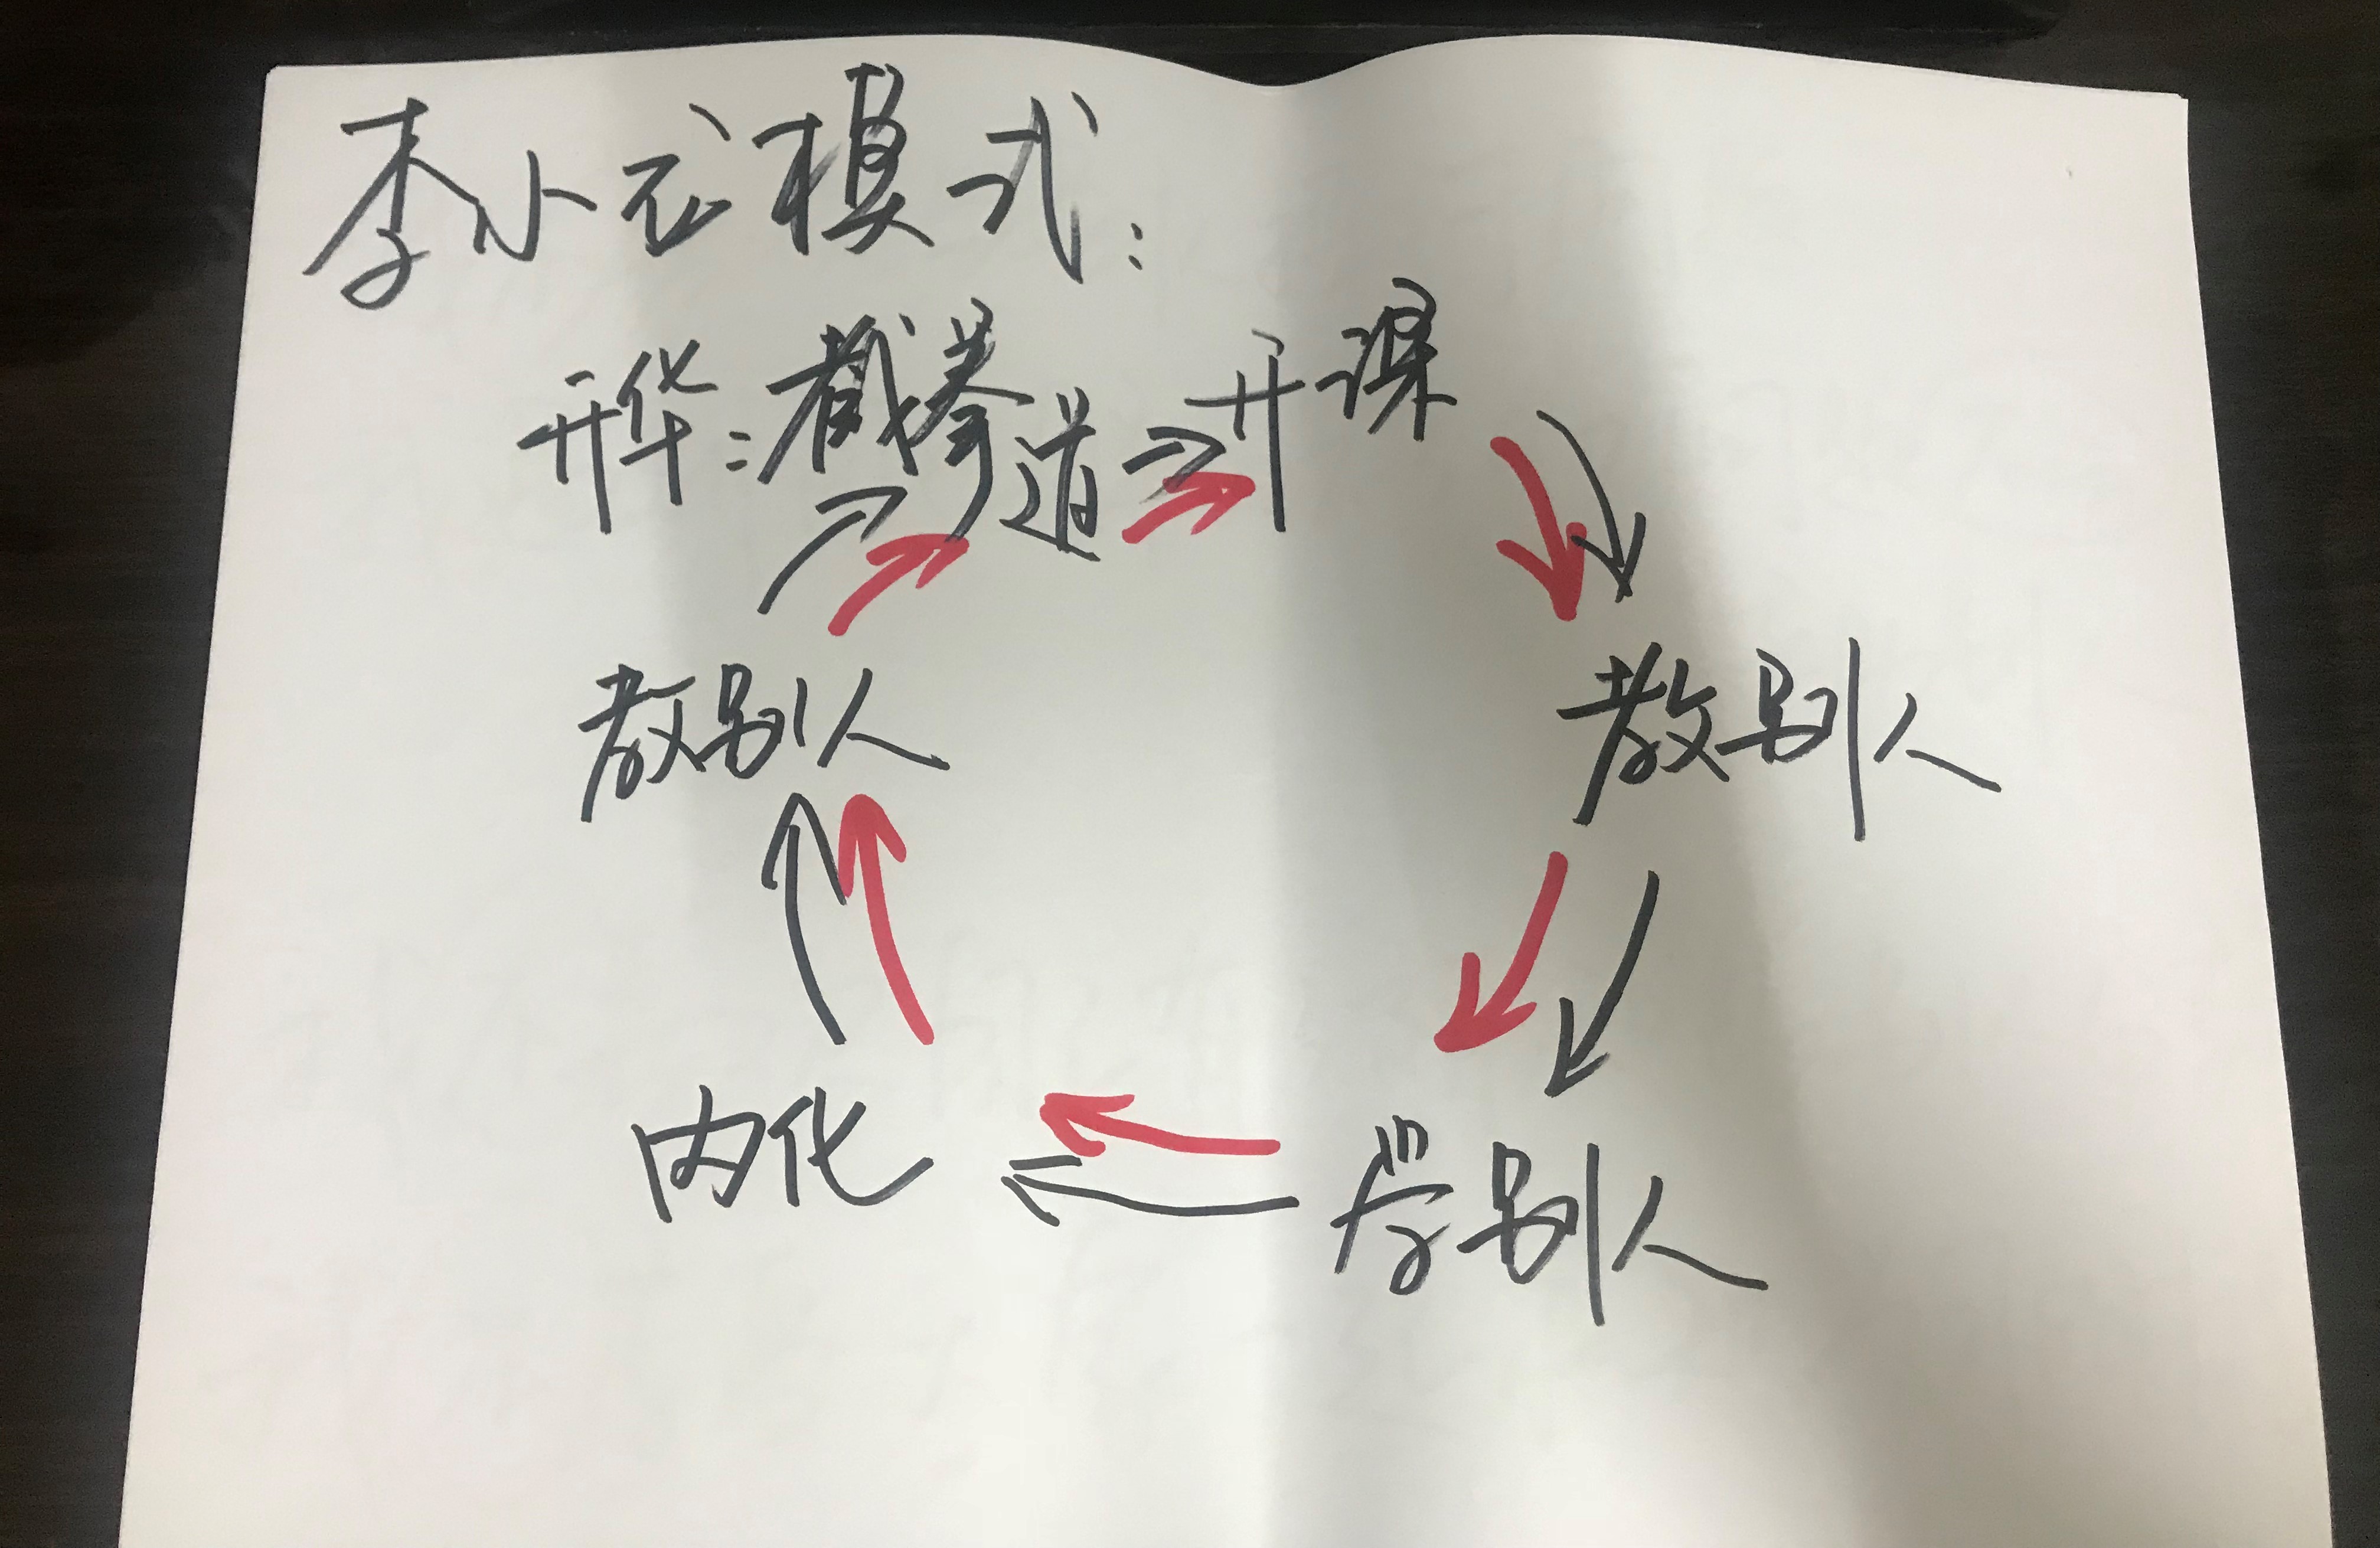 李小龙模式:
升华:截拳道 开课
教别人 教别人
内化 学别人